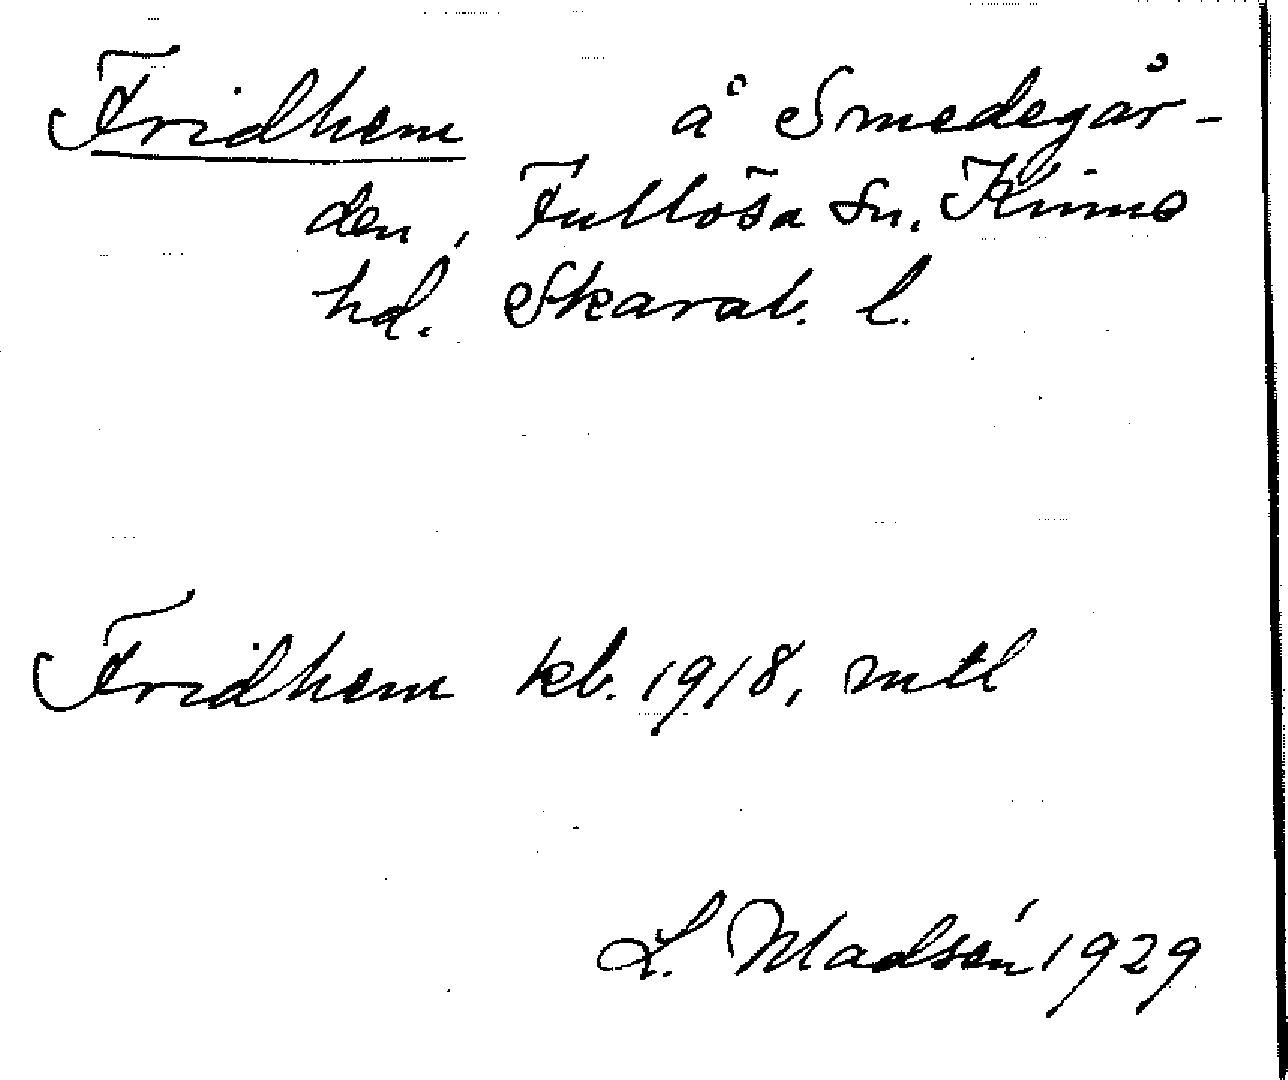 Fridhem å Smedegår-
den, Fullösa sn. Kinne
hd. Skarab. l.
Fridhem kb. 1918, mtl
L. Madsén 1929